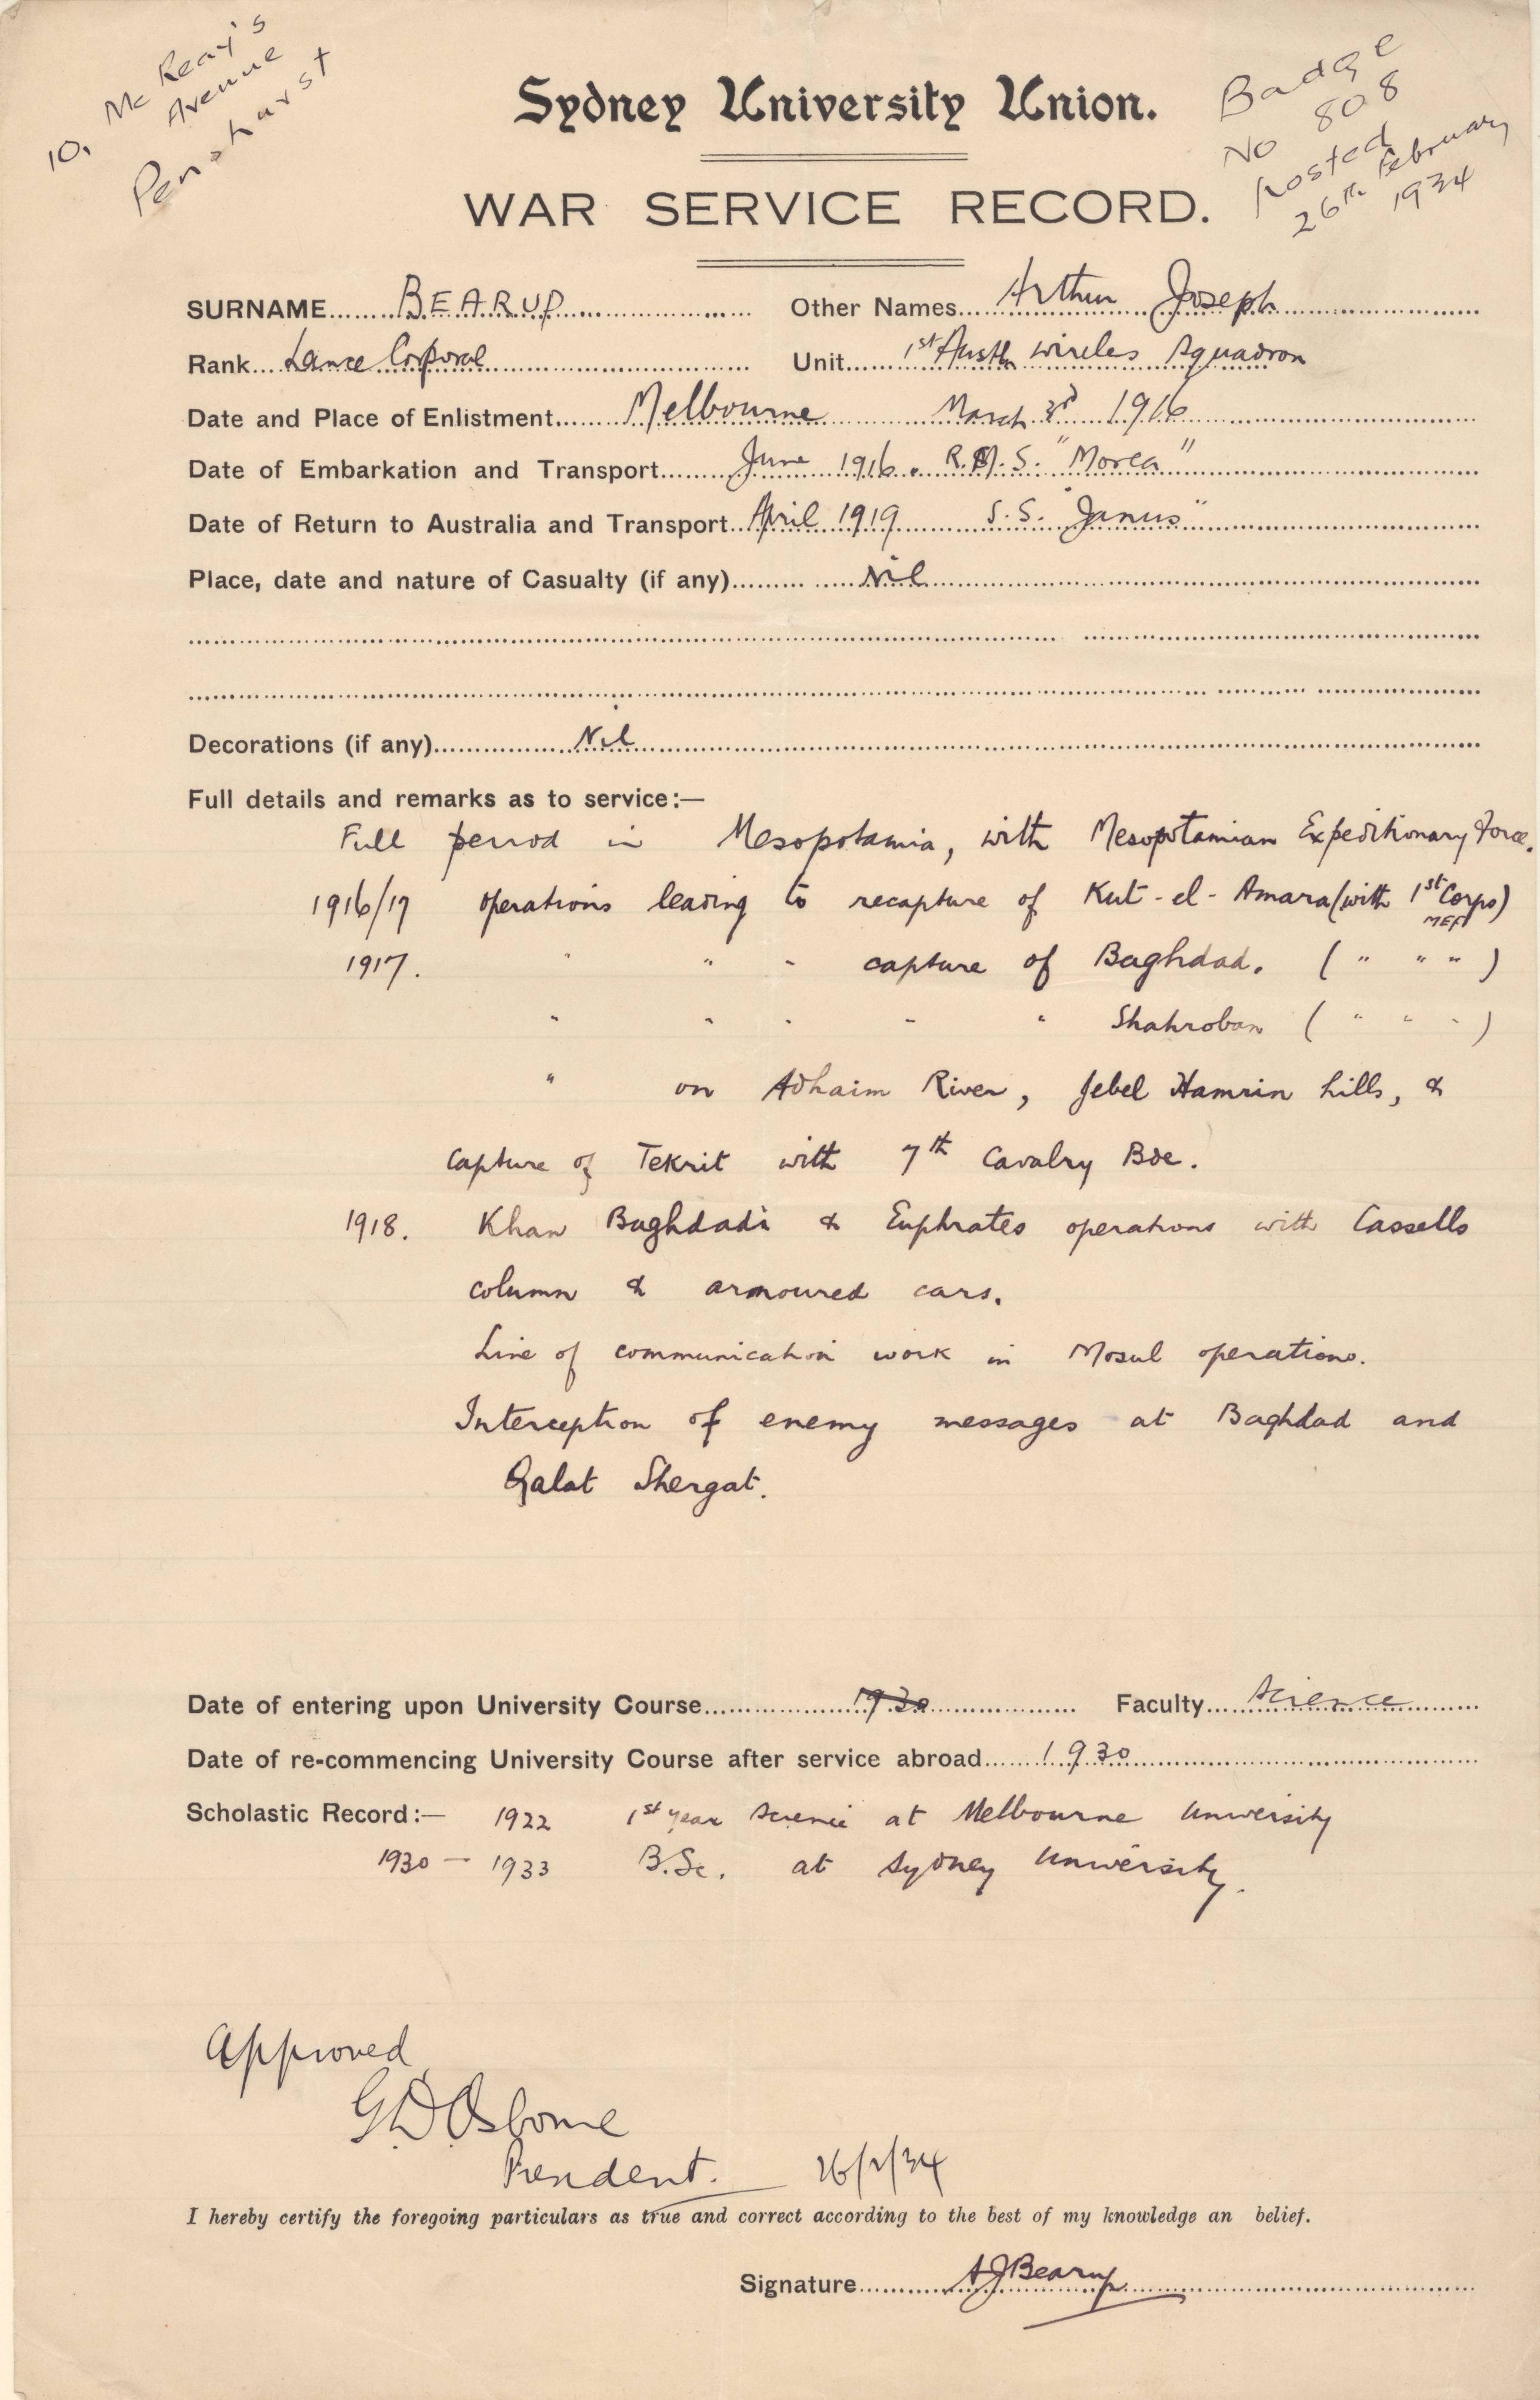 10, McReay's
Avenue
Penshurst
Badge
No 808
Posted
26th February
1934
Sydney University Union.
WAR SERVICE RECORD.
SURNAME BEARUP Other Names Arthur Joseph
Rank Lance Corporal Unit 1st Austn wireless Squadron
Date and Place of Enlistment Melbourne March 3rd 1916
Date of Embarkation and Transport June 1916. R.M.S. "Morea"
Date of Return to Australia and Transport April 1919 S.S. "Janus"
Place, date and nature of Casualty (if any) Nil
Decorations (if any) Nil
Full details and remarks as to service:—
Full period in Mesopotamia, with Mesopotamian Expeditionary Force.
1916/17 operations leading to recapture of Kut-el-Amara (with 1st Corps)
MEF
1917. " " " capture of Baghdad. ( " " " )
" " " " " Shahroban ( " " " )
" on Adhaim River, Jebel Hamrin hills, &
capture of Tekrit with 7th Cavalry Bde.
1918. Khan Baghdadi & Euphrates operations with Cassells
column & armoured cars.
Line of communication work in Mosul operations.
Interception of enemy messages at Baghdad and
Qalat Shergat.
Date of entering upon University Course 1930 Faculty Science
Date of re-commencing University Course after service abroad 1930
Scholastic Record:— 1922 1st year Science at Melbourne University
1930 — 1933 B.Sc. at Sydney University.
Approved
G.D. Osborne
President. 26/2/34
I hereby certify the foregoing particulars as true and correct according to the best of my knowledge an belief.
Signature AJBearup